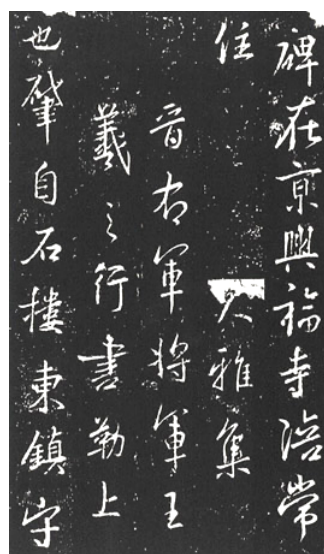 碑在京興福寺陪常
住 大雅集
晉右軍將軍王
羲之行書勒上
也肇自石樓東鎮守